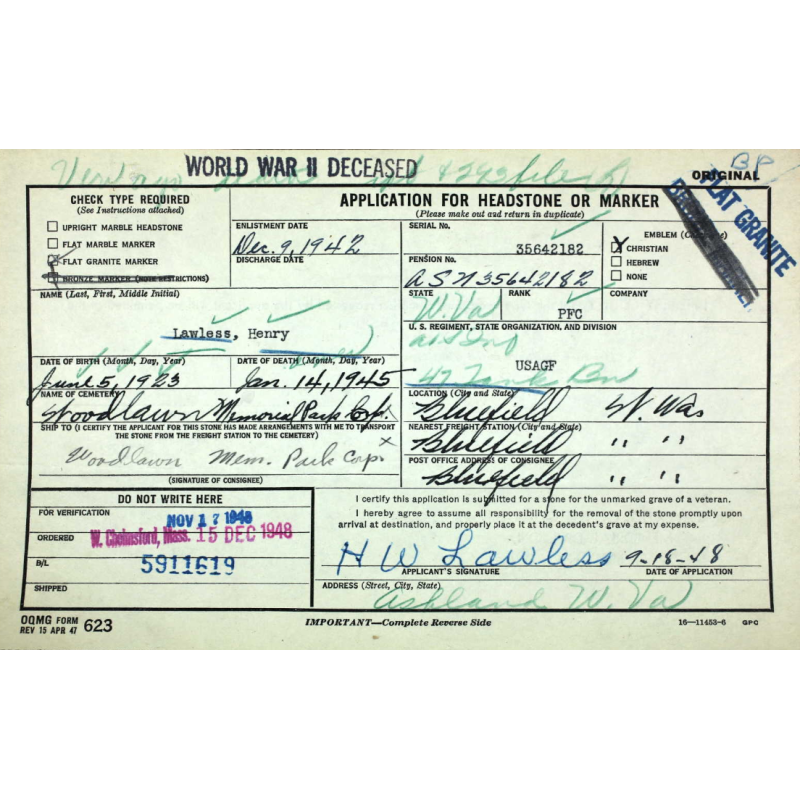 WORLD WAR II DECEASED
BP
ORIGINAL
FLAT GRANITE
CHECK TYPE REQUIRED
(See Instructions attached)
UPRIGHT MARBLE HEADSTONE
FLAT MARBLE MARKER
FLAT GRANITE MARKER
BRONZE MARKER (NOTE RESTRICTIONS)
APPLICATION FOR HEADSTONE OR MARKER
(Please make out and return in duplicate)
ENLISTMENT DATE
Dec. 9, 1942
DISCHARGE DATE
SERIAL No.
35642182
PENSION No.
ASN 35642182
EMBLEM
X CHRISTIAN
HEBREW
NONE
NAME (Last, First, Middle Initial)
Lawless, Henry
STATE
W. Va
RANK
PFC
COMPANY
U. S. REGIMENT, STATE ORGANIZATION, AND DIVISION
USAGF
47 Tank Bn
DATE OF BIRTH (Month, Day, Year)
June 5, 1923
DATE OF DEATH (Month, Day, Year)
Jan. 14, 1945
NAME OF CEMETERY
Woodlawn Memorial Park Corp.
LOCATION (City and State)
Bluefield W. Va
SHIP TO (I CERTIFY THE APPLICANT FOR THIS STONE HAS MADE ARRANGEMENTS WITH ME TO TRANSPORT THE STONE FROM THE FREIGHT STATION TO THE CEMETERY)
Woodlawn Mem. Park Corp. x
(SIGNATURE OF CONSIGNEE)
NEAREST FREIGHT STATION (City and State)
Bluefield " "
POST OFFICE ADDRESS OF CONSIGNEE
Bluefield " "
DO NOT WRITE HERE
FOR VERIFICATION
NOV 17 1948
ORDERED
W. Chelmsford, Mass. 15 DEC 1948
B/L
5911619
SHIPPED
I certify this application is submitted for a stone for the unmarked grave of a veteran.
I hereby agree to assume all responsibility for the removal of the stone promptly upon
arrival at destination, and properly place it at the decedent's grave at my expense.
H W Lawless 9-18-48
APPLICANT'S SIGNATURE
DATE OF APPLICATION
ADDRESS (Street, City, State)
Ashland W. Va
OQMG FORM
REV 15 APR 47 623
IMPORTANT—Complete Reverse Side
16—11453-6 GPO